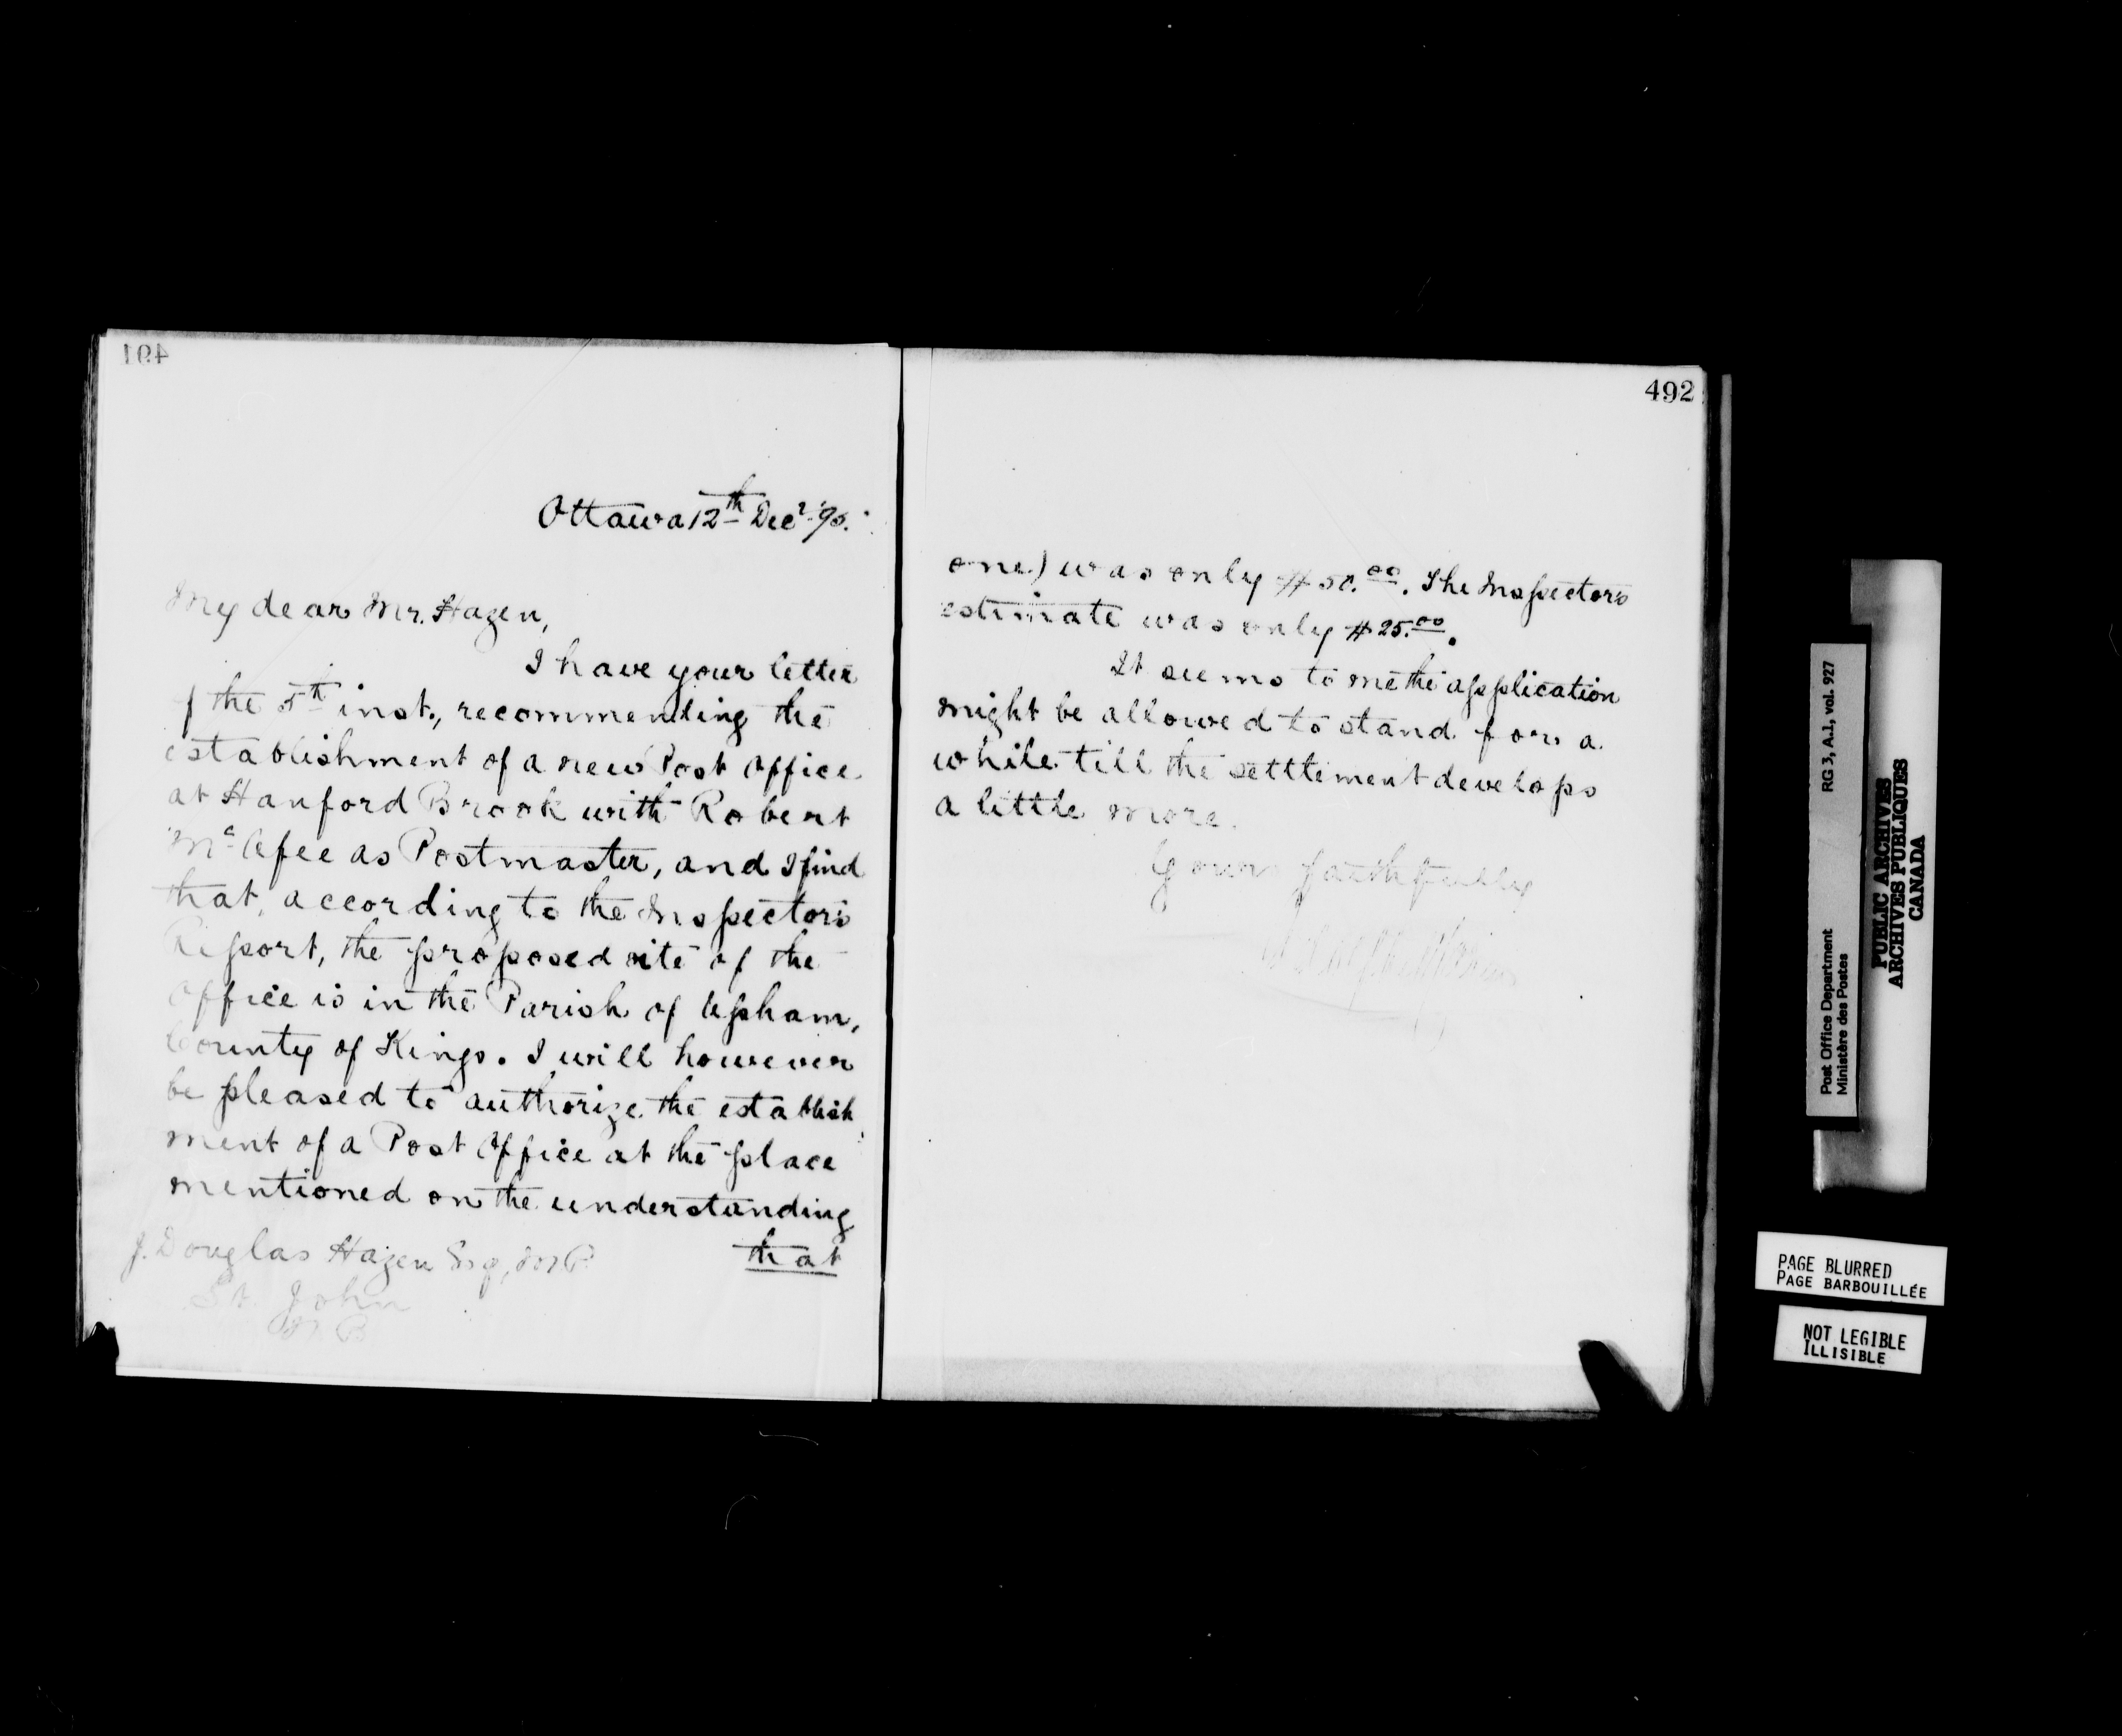 491
Ottawa 12th Decr '95.
My dear Mr. Hazen,
I have your letter
of the 5th inst., recommending the
establishment of a new Post Office
at Hanford Brook with Robert
McAfee as Postmaster, and I find
that, according to the Inspector's
Report, the proposed site of the
Office is in the Parish of Upham,
County of Kings. I will however
be pleased to authorize the establish
ment of a Post Office at the place
mentioned on the understanding
that
J. Douglas Hazen Esq, M P.
St. John
N B
492
one) was only $50.00. The Inspector's
estimate was only $25.00.
It seems to me the application
might be allowed to stand for a
while till the settlement develops
a little more.
Yours faithfully
RG 3, A.1, vol. 927
Post Office Department
Ministère des Postes
PUBLIC ARCHIVES
ARCHIVES PUBLIQUES
CANADA
PAGE BLURRED
PAGE BARBOUILLÉE
NOT LEGIBLE
ILLISIBLE